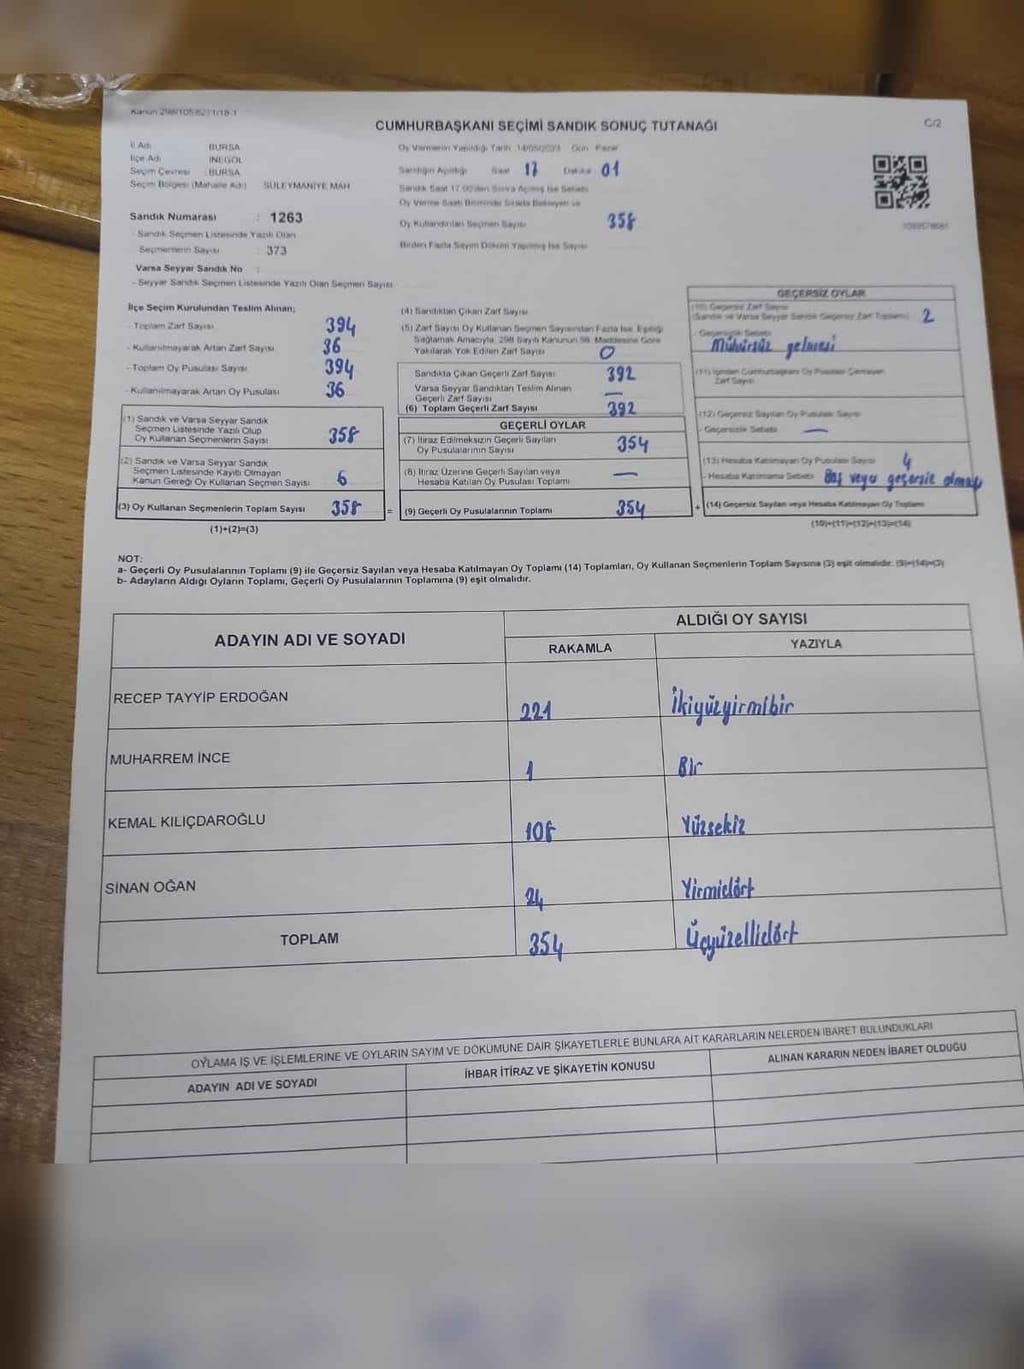 Kanun 298/105-623/1/18-1
CUMHURBAŞKANI SEÇİMİ SANDIK SONUÇ TUTANAĞI
C/2
İl Adı BURSA
İlçe Adı İNEGÖL
Seçim Çevresi : BURSA
Seçim Bölgesi (Mahalle Adı) SÜLEYMANİYE MAH
Sandık Numarası : 1263
- Sandık Seçmen Listesinde Yazılı Olan
Seçmenlerin Sayısı : 373
Varsa Seyyar Sandık No :
- Seyyar Sandık Seçmen Listesinde Yazılı Olan Seçmen Sayısı
Oy Vermenin Yapıldığı Tarih 14/05/2023 Gün Pazar
Sandığın Açıldığı Saat 17 Dakika 01
Sandık Saat 17.00'den Sonra Açılmış İse Sebebi
Oy Verme Saati Bitiminde Sırada Bekleyen ve
Oy Kullandırılan Seçmen Sayısı 358
Birden Fazla Sayım Döküm Yapılmış İse Sayısı
İlçe Seçim Kurulundan Teslim Alınan;
- Toplam Zarf Sayısı 394
- Kullanılmayarak Artan Zarf Sayısı 36
- Toplam Oy Pusulası Sayısı 394
- Kullanılmayarak Artan Oy Pusulası 36
(1) Sandık ve Varsa Seyyar Sandık
Seçmen Listesinde Yazılı Olup
Oy Kullanan Seçmenlerin Sayısı 358
(2) Sandık ve Varsa Seyyar Sandık
Seçmen Listesinde Kayıtlı Olmayan
Kanun Gereği Oy Kullanan Seçmen Sayısı 6
(3) Oy Kullanan Seçmenlerin Toplam Sayısı 358
(1)+(2)=(3)
(4) Sandıktan Çıkan Zarf Sayısı
(5) Zarf Sayısı Oy Kullanan Seçmen Sayısından Fazla İse, Eşitliği
Sağlamak Amacıyla, 298 Sayılı Kanunun 98. Maddesine Göre
Yakılarak Yok Edilen Zarf Sayısı 0
Sandıkta Çıkan Geçerli Zarf Sayısı 392
Varsa Seyyar Sandıktan Teslim Alınan
Geçerli Zarf Sayısı —
(6) Toplam Geçerli Zarf Sayısı 392
GEÇERLİ OYLAR
(7) İtiraz Edilmeksizin Geçerli Sayılan
Oy Pusulalarının Sayısı 354
(8) İtiraz Üzerine Geçerli Sayılan veya
Hesaba Katılan Oy Pusulası Toplamı —
= (9) Geçerli Oy Pusulalarının Toplamı 354
GEÇERSİZ OYLAR
(10) Geçersiz Zarf Sayısı
(Sandık ve Varsa Seyyar Sandık Geçersiz Zarf Toplamı) 2
- Geçersizlik Sebebi
Mühürsüz gelmesi
(11) İçinden Cumhurbaşkanı Oy Pusulası Çıkmayan
Zarf Sayısı
(12) Geçersiz Sayılan Oy Pusulası Sayısı
- Geçersizlik Sebebi —
(13) Hesaba Katılmayan Oy Pusulası Sayısı 4
- Hesaba Katılmama Sebebi Boş veya geçersiz olması
+ (14) Geçersiz Sayılan veya Hesaba Katılmayan Oy Toplamı
(10)+(11)+(12)+(13)=(14)
NOT:
a- Geçerli Oy Pusulalarının Toplamı (9) ile Geçersiz Sayılan veya Hesaba Katılmayan Oy Toplamı (14) Toplamları, Oy Kullanan Seçmenlerin Toplam Sayısına (3) eşit olmalıdır. (9)+(14)=(3)
b- Adayların Aldığı Oyların Toplamı, Geçerli Oy Pusulalarının Toplamına (9) eşit olmalıdır.
ADAYIN ADI VE SOYADI
ALDIĞI OY SAYISI
RAKAMLA YAZIYLA
RECEP TAYYİP ERDOĞAN 221 İkiyüzyirmibir
MUHARREM İNCE 1 Bir
KEMAL KILIÇDAROĞLU 108 Yüzsekiz
SİNAN OĞAN 24 Yirmidört
TOPLAM 354 Üçyüzellidört
OYLAMA İŞ VE İŞLEMLERİNE VE OYLARIN SAYIM VE DÖKÜMÜNE DAİR ŞİKAYETLERLE BUNLARA AİT KARARLARIN NELERDEN İBARET BULUNDUKLARI
ADAYIN ADI VE SOYADI İHBAR İTİRAZ VE ŞİKAYETİN KONUSU ALINAN KARARIN NEDEN İBARET OLDUĞU